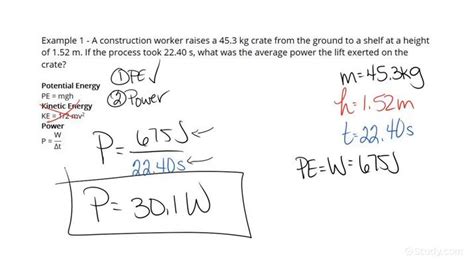 Example 1 - A construction worker raises a 45.3 kg crate from the ground to a shelf at a height
of 1.52 m. If the process took 22.40 s, what was the average power the lift exerted on the
crate?
Potential Energy
PE = mgh
Kinetic Energy
KE = 1/2 mv²
Power
P = W/Δt
① PE ✓
② Power
P = 675J/22.40s
P = 30.1W
m = 45.3kg
h = 1.52m
t = 22.40s
PE = W = 675J
©Study.com